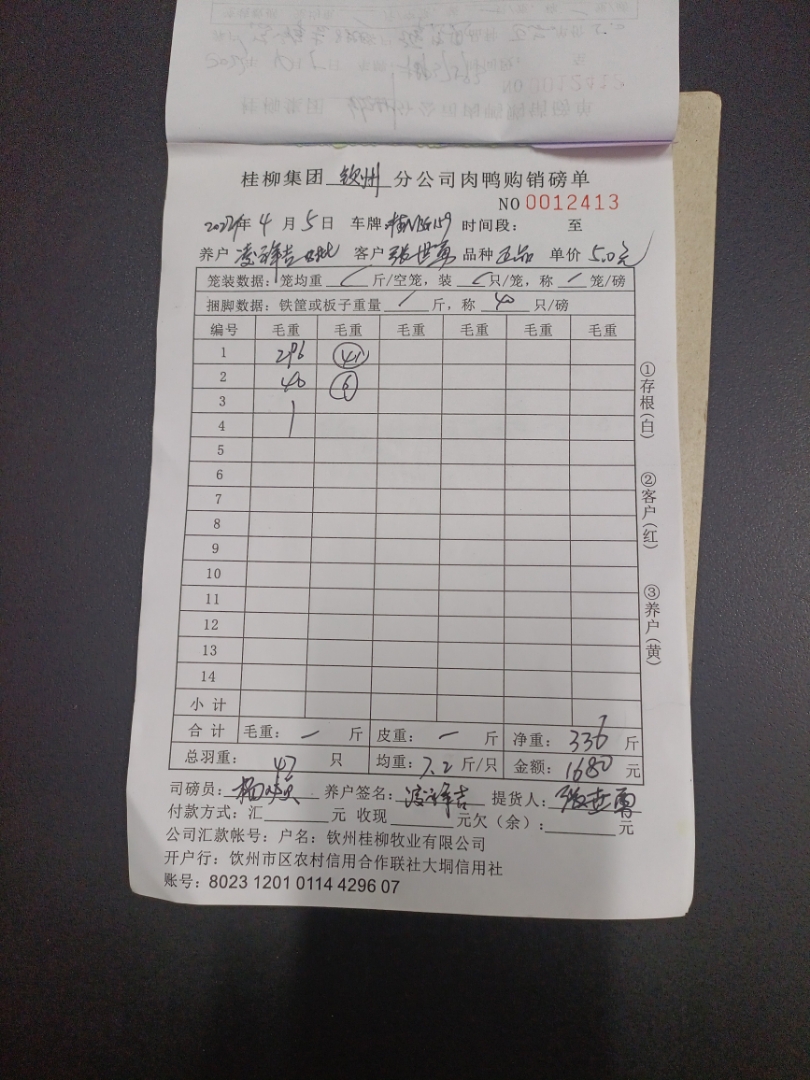 桂柳集团 钦州 分公司肉鸭购销磅单
NO 0012413
2023年 4 月 5 日 车牌: 时间段: 至
养户 凌祥吉 客户 张世勇 品种 正品 单价 5.0元
笼装数据: 笼均重 斤/空笼, 装 只/笼, 称 笼/磅
捆脚数据: 铁筐或板子重量 / 斤, 称 40 只/磅
编号 毛重 毛重 毛重 毛重 毛重 毛重
1 296 41
2 40 6
3
4
5
6
7
8
9
10
11
12
13
14
小 计
合 计 毛重: 一 斤 皮重: 一 斤 净重: 336 斤
总羽重: 47 只 均重: 7.2 斤/只 金额: 1680 元
司磅员: 养户签名: 凌祥吉 提货人: 张世勇
付款方式: 汇 元 收现 元欠(余): 元
公司汇款帐号: 户名: 钦州桂柳牧业有限公司
开户行: 饮州市区农村信用合作联社大垌信用社
账号: 8023 1201 0114 4296 07
①存根(白)
②客户(红)
③养户(黄)